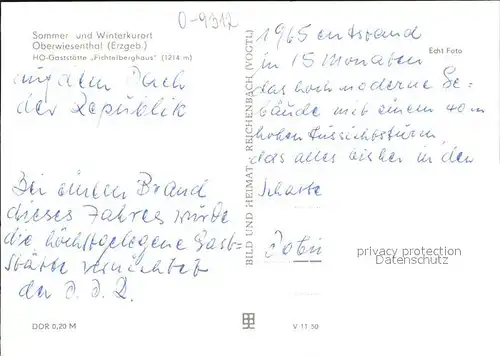 O-9312
Sommer- und Winterkurort
Oberwiesenthal (Erzgeb.)
HO-Gaststätte „Fichtelberghaus" (1214 m)
auf dem Dach
der Republik
Bei einem Brand
dieses Jahres wurde
die höchstgelegene Gast-
stätte vernichtet
der
DDR 0,20 M
BILD UND HEIMAT REICHENBACH (VOGTL)
1965 entstand
Echt Foto
in 15 Monaten
das hoch moderne Ge-
bäude mit einem 40 m
hohen Aussichtsturm
das alles bisher in den
Schatte
privacy protection
Datenschutz
V 11 50